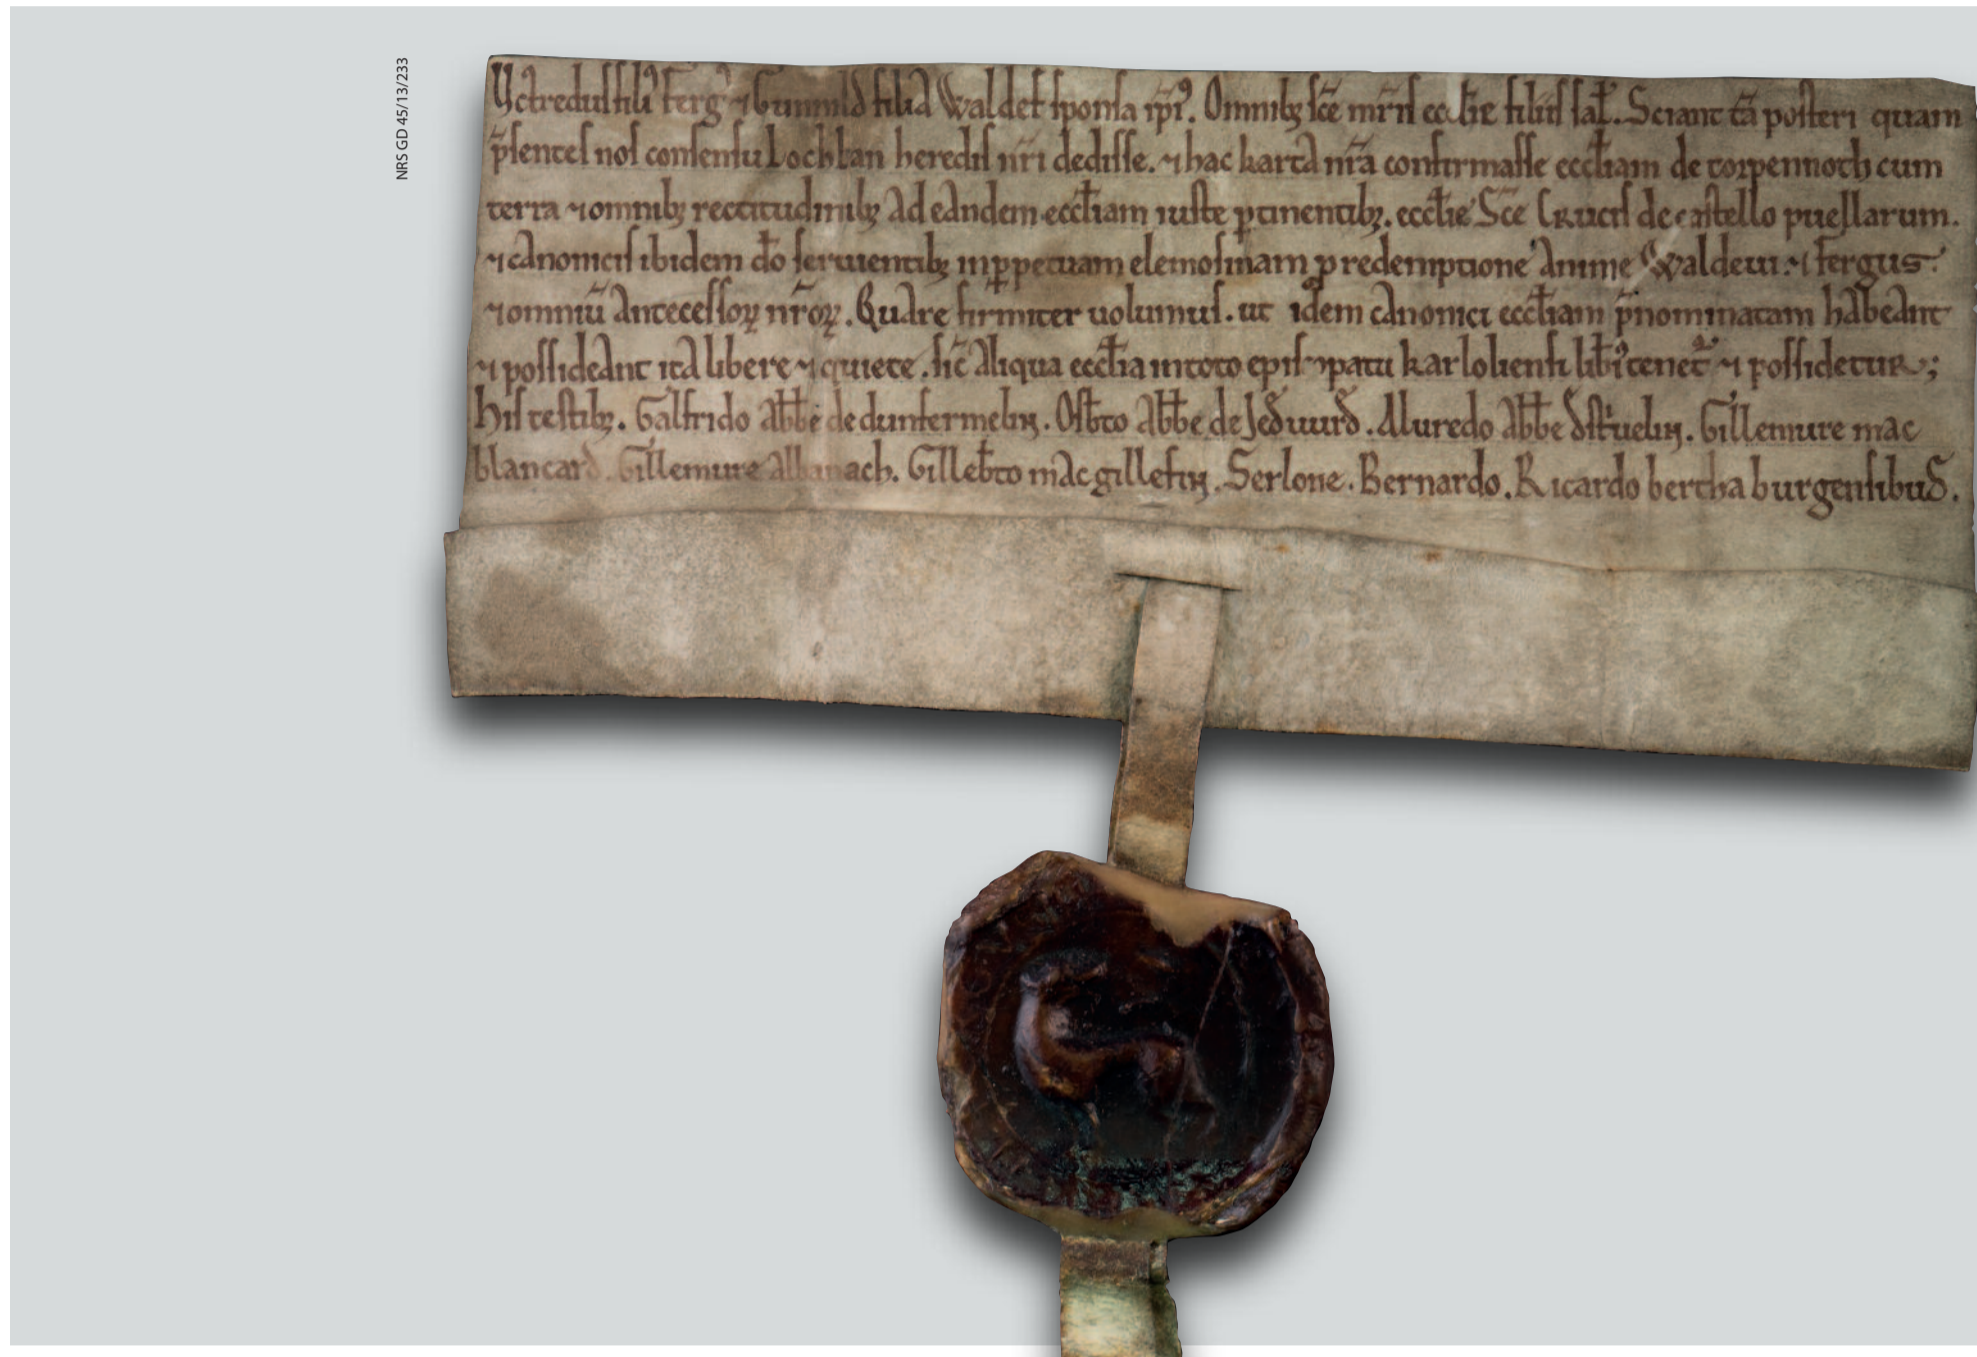 NRS GD 45/13/233
Uctreduſ filiꝰ ferg᷑ ⁊ Gunnild filia Waldef ſponſa ipiꝰ. Omnibꝫ ſce᷑ mr̃iſ eccłie filiiſ ſał. Sciant tā poſteri quam
p̃ſenteſ noſ conſenſu Lochlan heredis nr̃i dediſſe. ⁊ hac karta nr̃a confirmaſſe eccłiam de torpennoth cum
terra ⁊ omnibꝫ rectitudinibꝫ ad eandem eccłiam iuſte ꝑtinentibꝫ. eccłie Sc̃e Cruciſ de caſtello puellarum.
⁊ canoniciſ ibidem do᷑ ſeruientibꝫ in ꝑpetuam elemoſinam ꝓ redemptione anime Waldeui. ⁊ ferguſ.
⁊ omniū anteceſſoꝝ nr̃oꝝ. Quare firmiter uolumuſ. ut idem canonici eccłiam p̃nominatam habeant
⁊ poſſideant ita libere ⁊ quiete. ſic̃ aliqua eccłia in toto epiſcopatu karlolienſi libiꝰ tenet᷑ ⁊ poſſidetur;
hiſ teſtibꝫ. Galfrido abƀe de dunfermelin. Oſƀto abƀe de Jedwurd. Aluredo abƀe d ſtriuelin. Gillemure mac
blancard. Gillemure albanach. Gilleƀto mac gillefin. Serlone. Bernardo. Ricardo bertha burgenſibuſ.